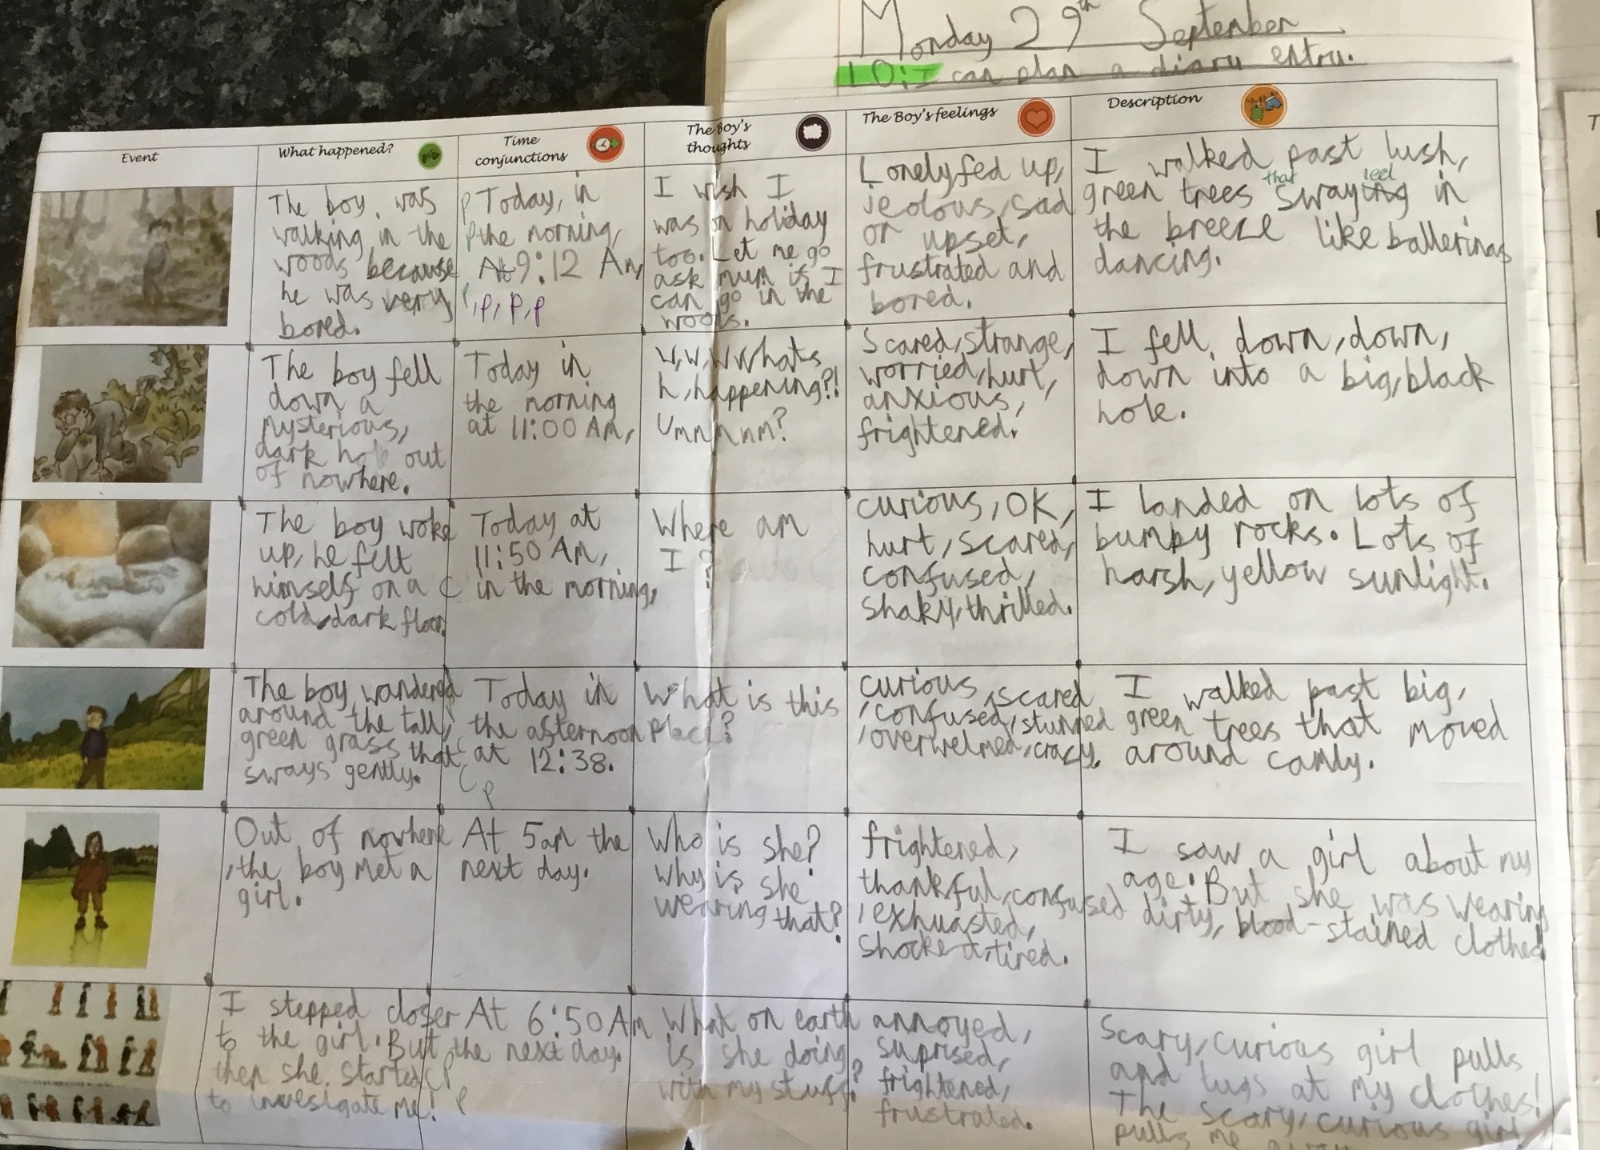 Monday 29th September
LO: I can plan a diary entry.
Event
What happened?
Time
conjunctions
The Boy's
thoughts
The Boy's feelings
Description
The boy was
walking in the
woods because
he was very
bored.
Today, in
the morning,
At 9:12 Am,
p, p, p
I wish I
was on holiday
too. Let me go
ask mum if I
can go in the
woods.
Lonely, fed up,
jeolous, sad
or upset,
frustrated and
bored.
I walked past lush,
green trees that swayed in
the breeze like ballerinas
dancing.
The boy fell
down a
mysterious,
dark hole out
of nowhere.
Today in
the morning
at 11:00 Am,
W, w, w whats
h, happening?!
Ummnnm?
Scared, strange,
worried, hurt,
anxious,
frightened.
I fell down, down,
down into a big, black
hole.
The boy woke
up, he felt
himself on a
cold, dark floor.
Today at
11:50 Am,
in the morning,
Where am
I?
curious, OK,
hurt, scared,
confused,
shaky, thrilled.
I landed on lots of
bumpy rocks. Lots of
harsh, yellow sunlight.
The boy wandered
around the tall,
green grass that
sways gently.
Today in
the afternoon
at 12:38.
What is this
place?
curious, scared
, confused, stunned
, overwelmed, crazy.
I walked past big,
green trees that moved
around camly.
Out of nowhere
, the boy met a
girl.
At 5am the
next day.
Who is she?
why is she
wearing that?
frightened,
thankful, confused
, exhuasted,
shocked, tired.
I saw a girl about my
age. But she was wearing
dirty, blood-stained clothes.
I stepped closer
to the girl. But
then she started
to investigate me!
At 6:50 Am
the next day.
What on earth
is she doing
with my stuff?
annoyed,
suprised,
frightened,
frustrated.
Scary, curious girl pulls
and tugs at my clothes!
The scary, curious girl
pulls me